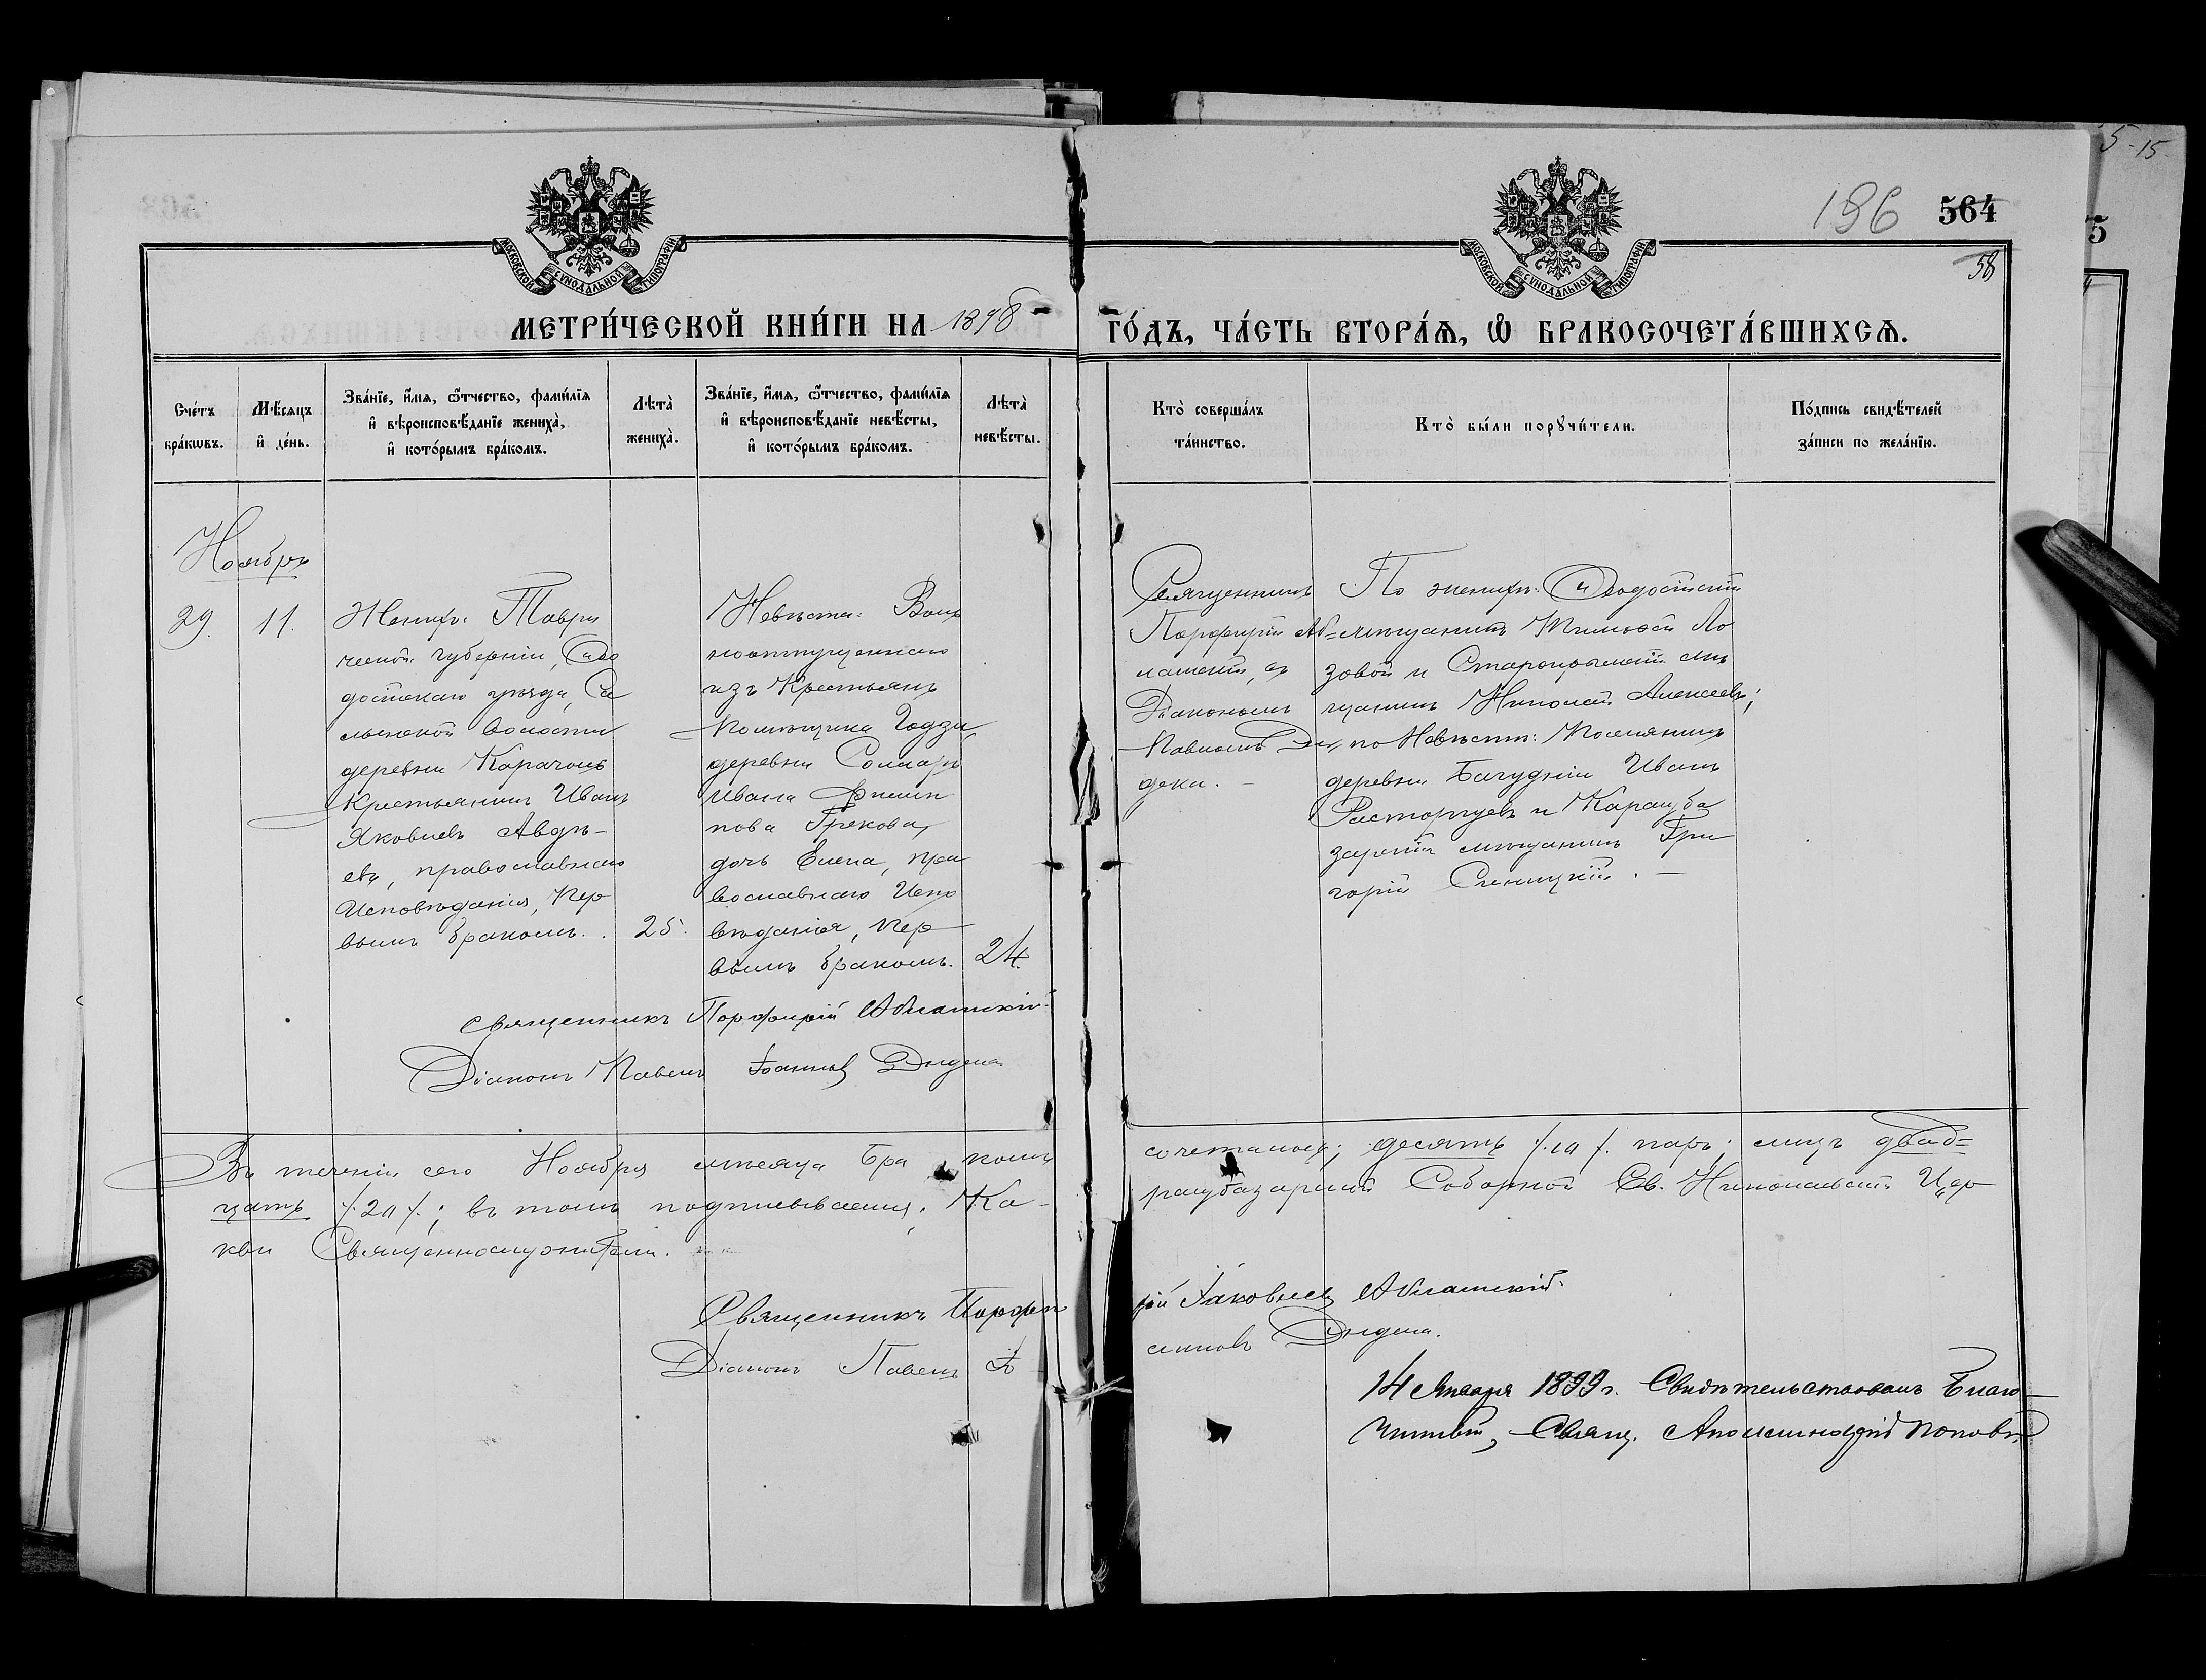 5-15.
196 564
58
5
МОСКОВСКОЙ СУНОДАЛЬНОЙ ТИПОГРАФІИ
МОСКОВСКОЙ СУНОДАЛЬНОЙ ТИПОГРАФІИ
МЕТРИ́ЧЕСКОЙ КНИ́ГИ НА 1898
ГО́ДЪ, ЧА́СТЬ ВТОРА́Ѧ, Ѡ҆ БРАКОСОЧЕТА́ВШИХСѦ.
Сче́тъ
бра́кѡвъ.
Мѣ́сяцъ
и҆ де́нь.
Зва́нїе, и҆́мя, ѻ҆́тчество, фами́лїя
и҆ вѣроисповѣ́данїе жениха̀,
и҆ кото́рымъ бра́комъ.
Лѣта̀
жениха̀.
Зва́нїе, и҆́мя, ѻ҆́тчество, фами́лїя
и҆ вѣроисповѣ́данїе невѣ́сты,
и҆ кото́рымъ бра́комъ.
Лѣта̀
невѣ́сты.
Кто̀ соверша́лъ
та́инство.
Кто̀ бы́ли порꙋчи́тели.
По́дпись свидѣ́телей
за́писи по жела́нїю.
Ноябрь
29.
11.
Женихъ: Таври
ческой губерніи, Ѳео
досійскаго уѣзда, Са
лынской волости
деревни Карачоль
Крестьянинъ Иванъ
Яковлевъ Авдѣ-
евъ, православнаго
Исповѣданія, пер
вымъ бракомъ.
25.
Невѣста: Воль
ноотпущеннаго
изъ Крестьянъ
помѣщика Годзи
деревни Соллар
Ивана Филип
пова Грекова,
дочь Елена, пра
вославнаго Испо
вѣданія, пер
вымъ бракомъ.
24.
Священникъ
Порфирій Аб=
лашкій, съ
Діакономъ
Павломъ Ди
дека. -
По женихѣ: Ѳеодосійскій
мѣщанинъ Тимофей Ло
зовой и Старокрымскій мѣ
щанинъ Николай Алексеевъ;
по Невѣстѣ: Поселянинъ
деревни Иванъ
Расторгуевъ и Карасуба
зарскій мѣщанинъ Гри
горій . -
Священникъ Порфирій Аблашкій.
Діаконъ Павелъ Іоанновъ Дидека
Въ теченіи сего Ноября мѣсяца бра комъ сочеталось; десять /.10./ паръ; лицъ двад=
цать /.20./; въ томъ подписываемся, Ка- расубазарской Соборной Св. Николаевской Цер
кви Священнослужители.
Священникъ Порфи рій Іаковлевъ Аблашкій.
Діаконъ Павелъ Іо анновъ Дидека.
14 Января 1899 г. Свидѣтельствовалъ Благо-
чинный, Свящ. Аполлинарій Поповъ